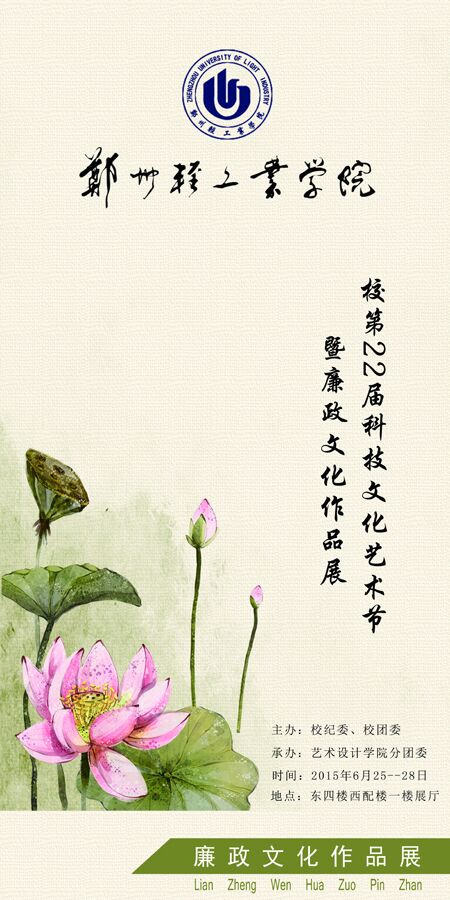 ZHENGZHOU UNIVERSITY OF LIGHT INDUSTRY
鄭州輕工業學院
鄭州轻工業学院
校第22届科技文化艺术节
暨廉政文化作品展
主办：校纪委、校团委
承办：艺术设计学院分团委
时间：2015年6月25--28日
地点：东四楼西配楼一楼展厅
廉政文化作品展
Lian Zheng Wen Hua Zuo Pin Zhan